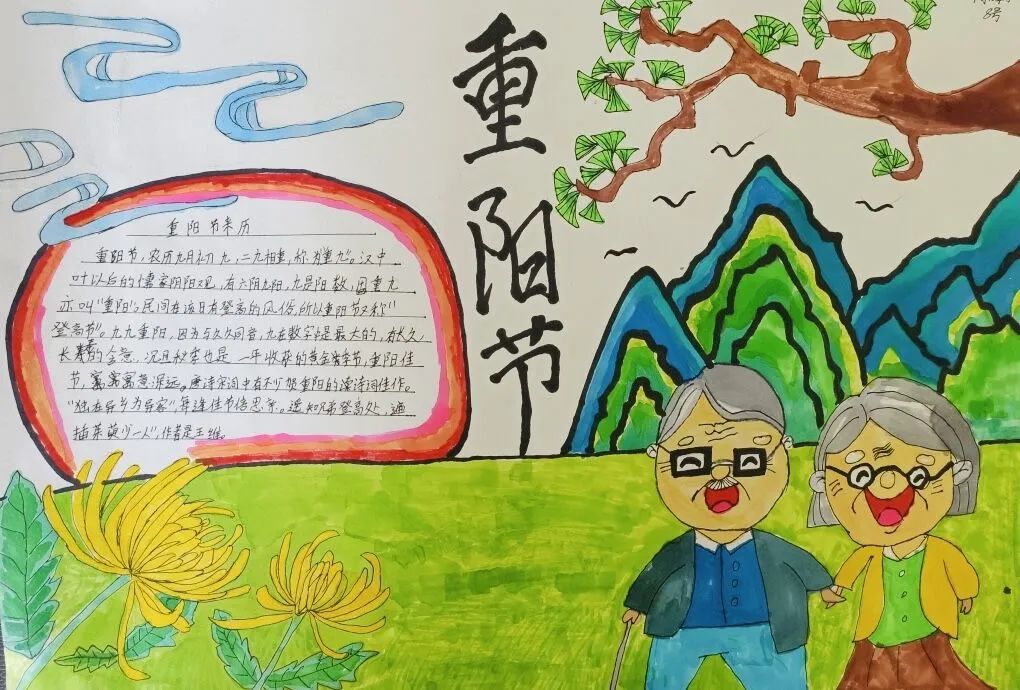 重阳节
8号
重阳节来历
重阳节,农历九月初九,二九相重,称"重九"。汉中
叶以后的儒家阴阳观,有六阴九阳,九是阳数,因重九
亦叫"重阳"。民间在该日有登高的风俗,所以重阳节又称"
登高节"。九九重阳,因为与久久同音,九在数字中是最大的,有长久,
长寿的含意,况且秋季也是一年收获的黄金季节,重阳佳
节,寓意深远。唐诗宋词中有不少贺重阳的诗词佳作。
"独在异乡为异客",每逢佳节倍思亲。遥知兄弟登高处,遍
插茱萸少一人",作者是王维。